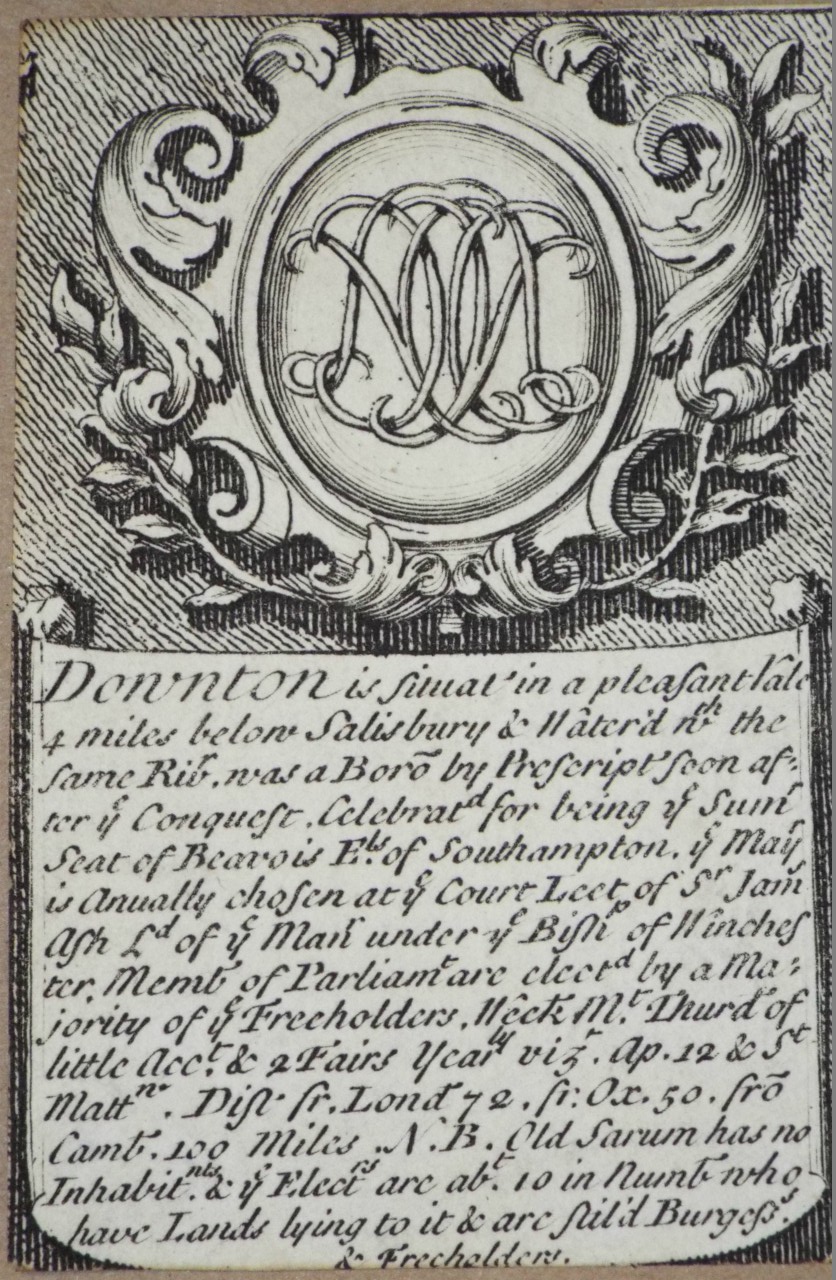 Downton is situat' in a pleasant Vale
4 miles below Salisbury & Water'd wth the
same Riv̄. was a Borō by Prescript' soon af-
ter ye Conquest. Celebratd for being ye Sumr
Seat of Beavois Els. of Southampton. ye Mayr
is Anually chosen at ye Court Leet of Sr Jam
Ash Ld of ye Manr under ye Bishp of Winches
ter. Memb of Parliamt are electd by a Ma-
jority of ye Freeholders, Week Mt. Thurdˢ of
little Acct. & 2 Fairs Yearly vizt. Ap. 12 & St
Mattw. Dist' fr. Lond 72. fr. Ox. 50. frō
Camb. 100 Miles. N.B. Old Sarum has no
Inhabitnts. & ye Electrs are abt. 10 in Numb who
have Lands lying to it & are stil'd Burgesss.
& Freeholders.